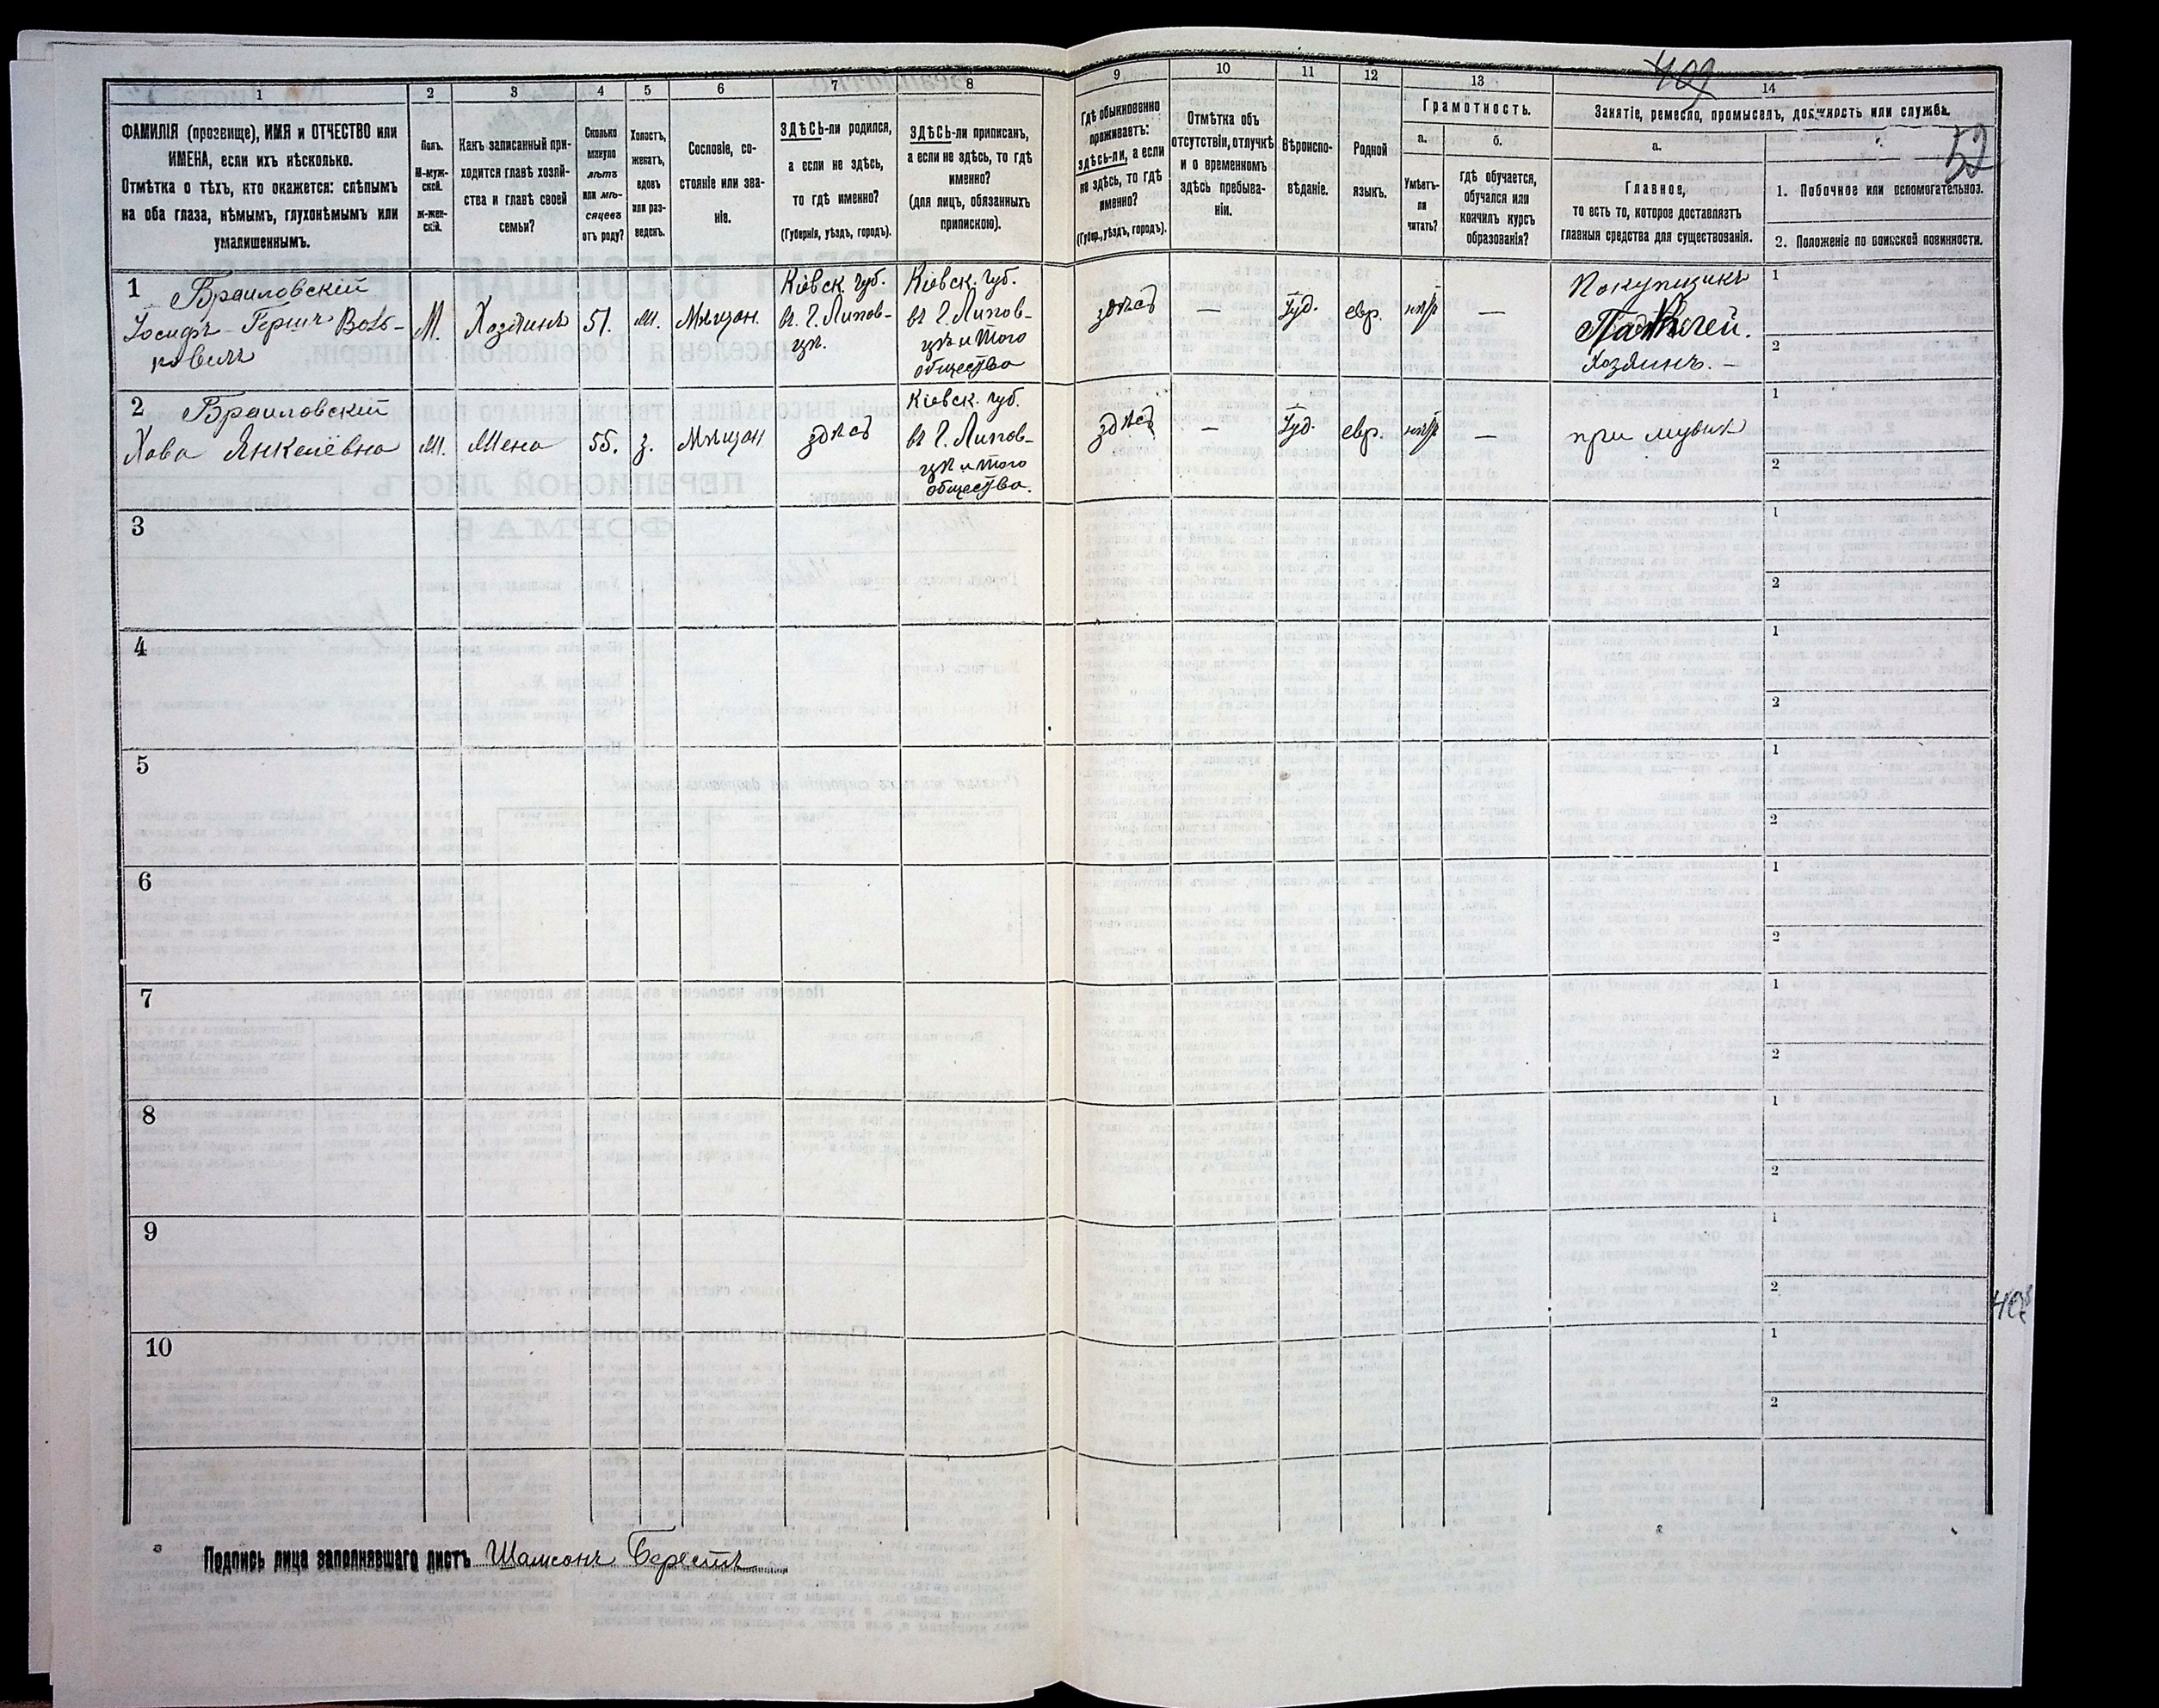 409
52
1
2
3
4
5
6
7
8
9
10
11
12
13
14
ФАМИЛІЯ (прозвище), ИМЯ и ОТЧЕСТВО или
ИМЕНА, если ихъ нѣсколько.
Отмѣтка о тѣхъ, кто окажется: слѣпымъ
на оба глаза, нѣмымъ, глухонѣмымъ или
умалишеннымъ.
Полъ.
М-муж-
ской.
Ж-жен-
скій.
Какъ записанный при-
ходится главѣ хозяй-
ства и главѣ своей
семьи?
Сколько
минуло
лѣтъ
или мѣ-
сяцевъ
отъ роду?
Холостъ,
женатъ,
вдовъ
или раз-
веденъ.
Сословіе, со-
стояніе или зва-
ніе.
ЗДѢСЬ-ли родился,
а если не здѣсь,
то гдѣ именно?
(Губернія, уѣздъ, городъ).
ЗДѢСЬ-ли приписанъ,
а если не здѣсь, то гдѣ
именно?
(для лицъ, обязанныхъ
припискою).
Гдѣ обыкновенно
проживаетъ:
здѣсь-ли, а если
не здѣсь, то гдѣ
именно?
(Губер., уѣздъ, городъ).
Отмѣтка объ
отсутствіи, отлучкѣ
и о временномъ
здѣсь пребыва-
ніи.
Вѣроиспо-
вѣданіе.
Родной
языкъ.
Грамотность.
а.
Умѣетъ-
ли
читать?
б.
гдѣ обучается,
обучался или
кончилъ курсъ
образованія?
Занятіе, ремесло, промыселъ, должность или служба.
а.
Главное,
то есть то, которое доставляетъ
главныя средства для существованія.
1. Побочное или вспомогательное.
2. Положеніе по воинской повинности.
1
Браиловскій
Іосифъ-Гершъ Воль-
ковичъ
М.
Хозяинъ
51.
м.
Мѣщан.
Кіевск. губ.
въ г. Липов-
цѣ.
Кіевск. губ.
въ г. Липов-
цѣ и того
общества
здѣсь
—
Іуд.
евр.
нѣтъ
—
Хозяинъ. —
1
2
2
Браиловскій
Хава Янкелевна
М.
Жена
55.
з.
Мѣщан
здѣсь
Кіевск. губ.
въ г. Липов-
цѣ и того
общества.
здѣсь
—
Іуд.
евр.
нѣтъ
—
при мужѣ
1
2
3
1
2
4
1
2
5
1
2
6
1
2
7
1
2
8
1
2
9
1
2
10
1
2
Подпись лица заполнявшаго листъ Шамсонъ Берестъ